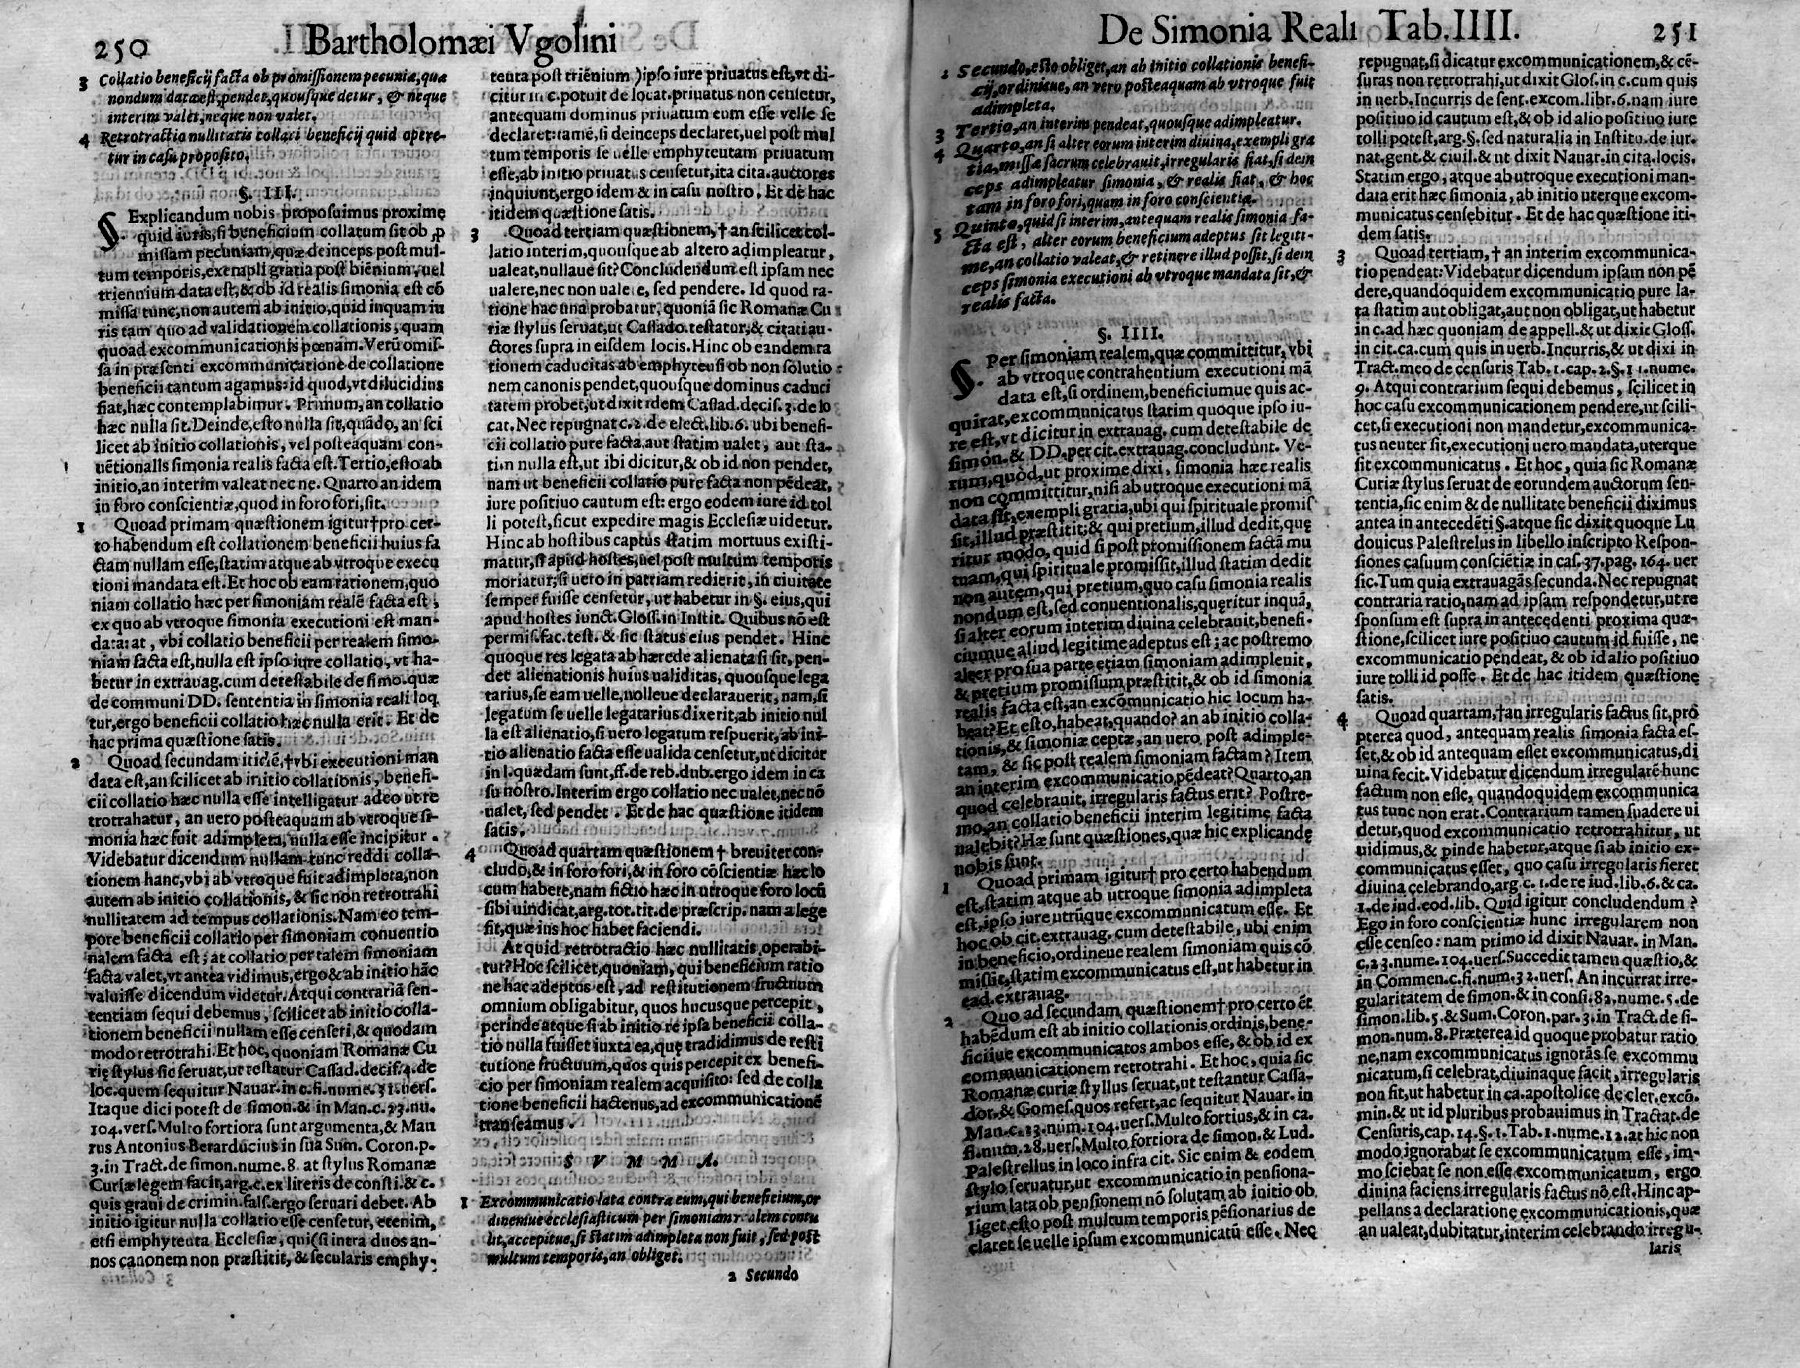 250 Bartholomæi Vgolini
3 Collatio beneficij facta ob promissionem pecunia, qua
nondum data est, pendet, quousque detur, & neque
interim valet, neque non valet.
4 Retrotractio nullitatis collati beneficij quid opere-
tur in casu proposito.
§. III.
§ Explicandum nobis proposuimus proxime
quid iuris, si beneficium collatum sit ob p
missam pecuniam, quæ deinceps post mul-
tum temporis, exempli gratia post biēnium, uel
triennium data est, & ob id realis simonia est cō
missa tunc, non autem ab initio, quid inquam iu
ris tam quo ad validationem collationis, quam
quoad excommunicationis pœnam. Verū omis-
sa in præsenti excommunicatione de collatione
beneficii tantum agamus: id quod, vt dilucidius
fiat, hæc contemplabimur. Primum, an collatio
hæc nulla sit. Deinde, esto nulla sit, quādo, an sci
licet ab initio collationis, vel posteaquam con-
uētionalis simonia realis facta est. Tertio, esto ab
initio, an interim valeat nec ne. Quarto an idem
in foro conscientiæ, quod in foro fori, sit.
1 Quoad primam quæstionem igitur† pro cer-
to habendum est collationem beneficii huius fa
ctam nullam esse, statim atque ab vtroque execu
tioni mandata est. Et hoc ob eam rationem, quo
niam collatio hæc per simoniam realē facta est,
ex quo ab vtroque simonia executioni est man-
data: at, vbi collatio beneficii per realem simo-
niam facta est, nulla est ipso iure collatio, vt ha-
betur in extrauag. cum detestabile de simo. quæ
de communi DD. sententia in simonia reali loq
tur, ergo beneficii collatio hæc nulla erit. Et de
hac prima quæstione satis.
2 Quoad secundam itidē, †vbi executioni man
data est, an scilicet ab initio collationis, benefi-
cii collatio hæc nulla esse intelligatur adeo ut re
trotrahatur, an uero posteaquam ab vtroque si-
monia hæc fuit adimpleta, nulla esse incipitur.
Videbatur dicendum nullam tunc reddi colla-
tionem hanc, vbi ab vtroque fuit adimpleta, non
autem ab initio collationis, & sic non retrotrahi
nullitatem ad tempus collationis. Nam eo tem-
pore beneficii collatio per simoniam conuentio
nalem facta est; at collatio per talem simoniam
facta valet, vt antea vidimus, ergo & ab initio hāc
valuisse dicendum videtur. Atqui contrariā sen-
tentiam sequi debemus, scilicet ab initio colla-
tionem beneficii nullam esse censeri, & quodam
modo retrotrahi. Et hoc, quoniam Romanæ Cu
rię stylus sic seruat, ut testatur Cassad. decis. 4. de
loc. quem sequitur Nauar. in c. fi. nume. 31. uers.
Itaque dici potest de simon. & in Man. c. 23. nu.
104. vers. Multo fortiora sunt argumenta, & Mau
rus Antonius Berarducius in sua Sum. Coron. p.
3. in Tract. de simon. nume. 8. at stylus Romanæ
Curiæ legem facit, arg. c. ex literis de consti. & c.
quis graui de crimin. fals. ergo seruari debet. Ab
initio igitur nulla collatio esse censetur, etenim,
etsi emphyteuta Ecclesiæ, qui (si intra duos an-
nos canonem non præstitit, & secularis emphy-
teuta post triēnium ) ipso iure priuatus est, vt di-
citur in c. potuit de locat. priuatus non censetur,
antequam dominus priuatum eum esse velle se
declaret: tamē, si deinceps declaret, uel post mul
tum temporis se uelle emphyteutam priuatum
esse, ab initio priuatus censetur, ita cita. auctores
inquiunt, ergo idem & in casu nostro. Et de hac
itidem quæstione satis.
3 Quoad tertiam quæstionem, † an scilicet col-
latio interim, quousque ab altero adimpleatur,
ualeat, nullaue sit? Concludendum est ipsam nec
ualere, nec non ualere, sed pendere. Id quod ra-
tione hac una probatur, quoniā sic Romanæ Cu
riæ stylus seruat, ut Cassado. testatur, & citati au-
ctores supra in eisdem locis. Hinc ob eandem ra
tionem caducitas ab emphyteusi ob non solutio
nem canonis pendet, quousque dominus caduci
tatem probet, ut dixit idem Cassad. decis. 3. de lo
cat. Nec repugnat c. 2. de elect. lib. 6. ubi benefi-
cii collatio pure facta, aut statim ualet, aut sta-
tim nulla est, ut ibi dicitur, & ob id non pendet,
nam ut beneficii collatio pure facta non pēdeat,
iure positiuo cautum est: ergo eodem iure id tol
li potest, sicut expedire magis Ecclesiæ uidetur.
Hinc ab hostibus captus statim mortuus existi-
matur, si apud hostes, uel post multum temporis
moriatur; si uero in patriam redierit, in ciuitate
semper fuisse censetur, ut habetur in §. eius, qui
apud hostes iunct. Gloss. in Instit. Quibus nō est
permis. fac. test. & sic status eius pendet. Hinc
quoque res legata ab hærede alienata si sit, pen-
det alienationis huius validitas, quousque lega
tarius, se eam uelle, nolleue declarauerit; nam, si
legatum se uelle legatarius dixerit, ab initio nul
la est alienatio, si uero legatum respuerit, ab ini-
tio alienatio facta esse ualida censetur, ut dicitur
in l. quædam sunt, ff. de reb. dub. ergo idem in ca
su nostro. Interim ergo collatio nec ualet, nec nō
ualet, sed pendet. Et de hac quæstione itidem
satis.
4 Quoad quartam quæstionem † breuiter con-
cludo, & in foro fori, & in foro cōscientiæ hæc lo
cum habere, nam fictio hæc in utroque foro locū
sibi uindicat, arg. tot. tit. de præscrip. nam a lege
fit, quæ ius hoc habet faciendi.
At quid retrotractio hæc nullitatis operabi-
tur? Hoc scilicet, quoniam, qui beneficium ratio
ne hac adeptus est, ad restitutionem fructuum
omnium obligabitur, quos hucusque percepit,
perinde atque si ab initio re ipsa beneficii colla-
tio nulla fuisset iuxta ea, quę tradidimus de resti
tutione fructuum, quos quis percepit ex benefi-
cio per simoniam realem acquisito: sed de colla
tione beneficii hactenus, ad excommunicationē
transeamus.
SVMMA.
1 Excommunicatio lata contra eum, qui beneficium, or
dinemue ecclesiasticum per simoniam realem contu
lit, accepitue, si statim adimpleta non fuit, sed post
multum temporis, an obliget.
2 Secundo
De Simonia Reali Tab. IIII. 251
2 Secundo, esto obliget, an ab initio collationis benefi-
cij, ordinisue, an vero posteaquam ab vtroque fuit
adimpleta.
3 Tertio, an interim pendeat, quousque adimpleatur.
4 Quarto, an si alter eorum interim diuina, exempli gra
tia, missæ sacrum celebrauit, irregularis fiat, si dein
ceps adimpleatur simonia, & realis fiat, & hoc
tam in foro fori, quam in foro conscientiæ.
5 Quinto, quid si interim, antequam realis simonia fa-
cta est, alter eorum beneficium adeptus sit legiti-
me, an collatio valeat, & retinere illud possit, si dein
ceps simonia executioni ab vtroque mandata sit, &
realis facta.
§. IIII.
§. Per simoniam realem, quæ committitur, vbi
ab vtroque contrahentium executioni mā
data est, si ordinem, beneficiumue quis ac-
quirat, excommunicatus statim quoque ipso iu-
re est, vt dicitur in extrauag. cum detestabile de
simon. & DD. per cit. extrauag. concludunt. Ve-
rum, quod, ut proxime dixi, simonia hæc realis
non committitur, nisi ab utroque executioni mā
data sit, exempli gratia, ubi qui spirituale promis
sit, illud præstitit; & qui pretium, illud dedit, quę
ritur modo, quid si post promissionem factā mu
tuam, qui spirituale promisit, illud statim dedit
non autem, qui pretium, quo casu simonia realis
nondum est, sed conuentionalis, queritur inquā,
si alter eorum interim diuina celebrauit, benefi-
ciumue aliud legitime adeptus est; ac postremo
alter pro sua parte etiam simoniam adimpleuit,
& pretium promissum præstitit, & ob id simonia
realis facta est, an excommunicatio hic locum ha-
beat? Et esto, habeat, quando? an ab initio colla-
tionis, & simoniæ ceptæ, an uero post adimple-
tam, & sic post realem simoniam factam? Item
an interim excommunicatio pēdeat? Quarto, an
quod celebrauit, irregularis factus erit? Postre-
mo, an collatio beneficii interim legitime facta
ualebit? Hæ sunt quæstiones, quæ hic explicandę
nobis sunt.
1 Quoad primam igitur† pro certo habendum
est, statim atque ab utroque simonia adimpleta
est, ipso iure utrūque excommunicatum esse. Et
hoc ob cit. extrauag. cum detestabile, ubi enim
in beneficio, ordineue realem simoniam quis cō
misit, statim excommunicatus est, ut habetur in
ead. extrauag.
2 Quo ad secundam, quæstionem† pro certo ēt
habēdum est ab initio collationis ordinis, bene-
ficiiue excommunicatos ambos esse, & ob id ex
communicationem retrotrahi. Et hoc, quia sic
Romanæ curiæ styllus seruat, ut testantur Cassa-
dor. & Gomes. quos refert, ac sequitur Nauar. in
Man. c. 23. num. 104. uers. Multo fortius, & in ca.
fi. num. 28. uers. Multo fortiora de simon. & Lud.
Palestrellus in loco infra cit. Sic enim & eodem
stylo seruatur, ut excommunicatio in pensiona-
rium lata ob pensionem nō solutam ab initio ob
liget, esto post multum temporis pēsionarius de
claret se uelle ipsum excommunicatū esse. Nec
repugnat, si dicatur excommunicationem, & cē-
suras non retrotrahi, ut dixit Glos. in c. cum quis
in uerb. Incurris de sent. excom. libr. 6. nam iure
positiuo id cautum est, & ob id alio positiuo iure
tolli potest, arg. §. sed naturalia in Institu. de iur.
nat. gent. & ciuil. & ut dixit Nauar. in cita. locis.
Statim ergo, atque ab utroque executioni man-
data erit hæc simonia, ab initio uterque excom-
municatus censebitur. Et de hac quæstione iti-
dem satis.
3 Quoad tertiam, † an interim excommunica-
tio pendeat: Videbatur dicendum ipsam non pē
dere, quandoquidem excommunicatio pure la-
ta statim aut obligat, aut non obligat, ut habetur
in c. ad hæc quoniam de appell. & ut dixit Gloss.
in cit. ca. cum quis in uerb. Incurris, & ut dixi in
Tract. meo de censuris Tab. 1. cap. 2. §. 11. nume.
9. Atqui contrarium sequi debemus, scilicet in
hoc casu excommunicationem pendere, ut scili-
cet, si executioni non mandetur, excommunica-
tus neuter sit, executioni uero mandata, uterque
sit excommunicatus. Et hoc, quia sic Romanæ
Curiæ stylus seruat de eorundem auctorum sen-
tentia, sic enim & de nullitate beneficii diximus
antea in antecedēti §. atque sic dixit quoque Lu
douicus Palestrelus in libello inscripto Respon-
siones casuum consciētiæ in cas. 37. pag. 164. uer
sic. Tum quia extrauagās secunda. Nec repugnat
contraria ratio, nam ad ipsam respondetur, ut re
sponsum est supra in antecedenti proxima quæ-
stione, scilicet iure positiuo cautum id fuisse, ne
excommunicatio pendeat, & ob id alio positiuo
iure tolli id posse. Et de hac itidem quæstionę
satis.
4 Quoad quartam, †an irregularis factus sit, pro
pterea quod, antequam realis simonia facta es-
set, & ob id antequam esset excommunicatus, di
uina fecit. Videbatur dicendum irregularē hunc
factum non esse, quandoquidem excommunica
tus tunc non erat. Contrarium tamen suadere ui
detur, quod excommunicatio retrotrahitur, ut
uidimus, & pinde habetur, atque si ab initio ex-
communicatus esset, quo casu irregularis fieret
diuina celebrando, arg. c. 1. de re iud. lib. 6. & ca.
1. de iud. eod. lib. Quid igitur concludendum?
Ego in foro conscientiæ hunc irregularem non
esse censeo: nam primo id dixit Nauar. in Man.
c. 23. nume. 104. uers. Succedit tamen quæstio, &
in Commen. c. fi. num. 32. uers. An incurrat irre-
gularitatem de simon. & in consi. 82. nume. 5. de
simon. lib. 5. & Sum. Coron. par. 3. in Tract. de si-
mon. num. 8. Præterea id quoque probatur ratio
ne, nam excommunicatus ignorās se excommu
nicatum, si celebrat, diuinaque facit, irregularis
non fit, ut habetur in ca. apostolicę de cler. excō.
min. & ut id pluribus probauimus in Tractat. de
Censuris, cap. 14. §. 1. Tab. 1. nume. 12. at hic non
modo ignorabat se excommunicatum esse, im-
mo sciebat se non esse excommunicatum, ergo
diuina faciens irregularis factus nō est. Hinc ap-
pellans a declaratione excommunicationis, quæ
an ualeat, dubitatur, interim celebrando irregu-
laris